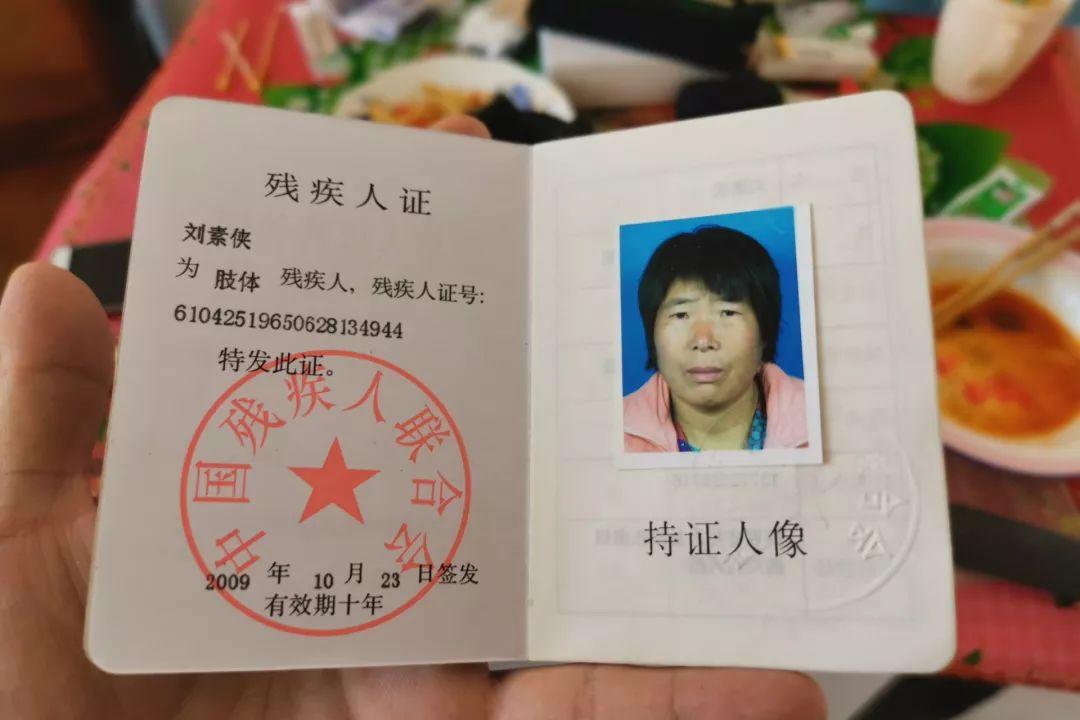 残疾人证
刘素侠
为 肢体 残疾人，残疾人证号：
61042519650628134944
特发此证。
中国残疾人联合会
2009 年 10 月 23 日签发
有效期十年
持证人像